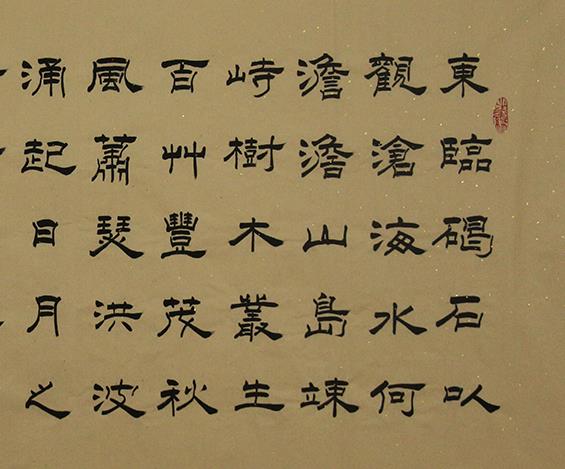 東臨碣石以
觀滄海水何
澹澹山島竦
峙樹木叢生
百艸豐茂秋
風蕭瑟洪波
涌起日月之